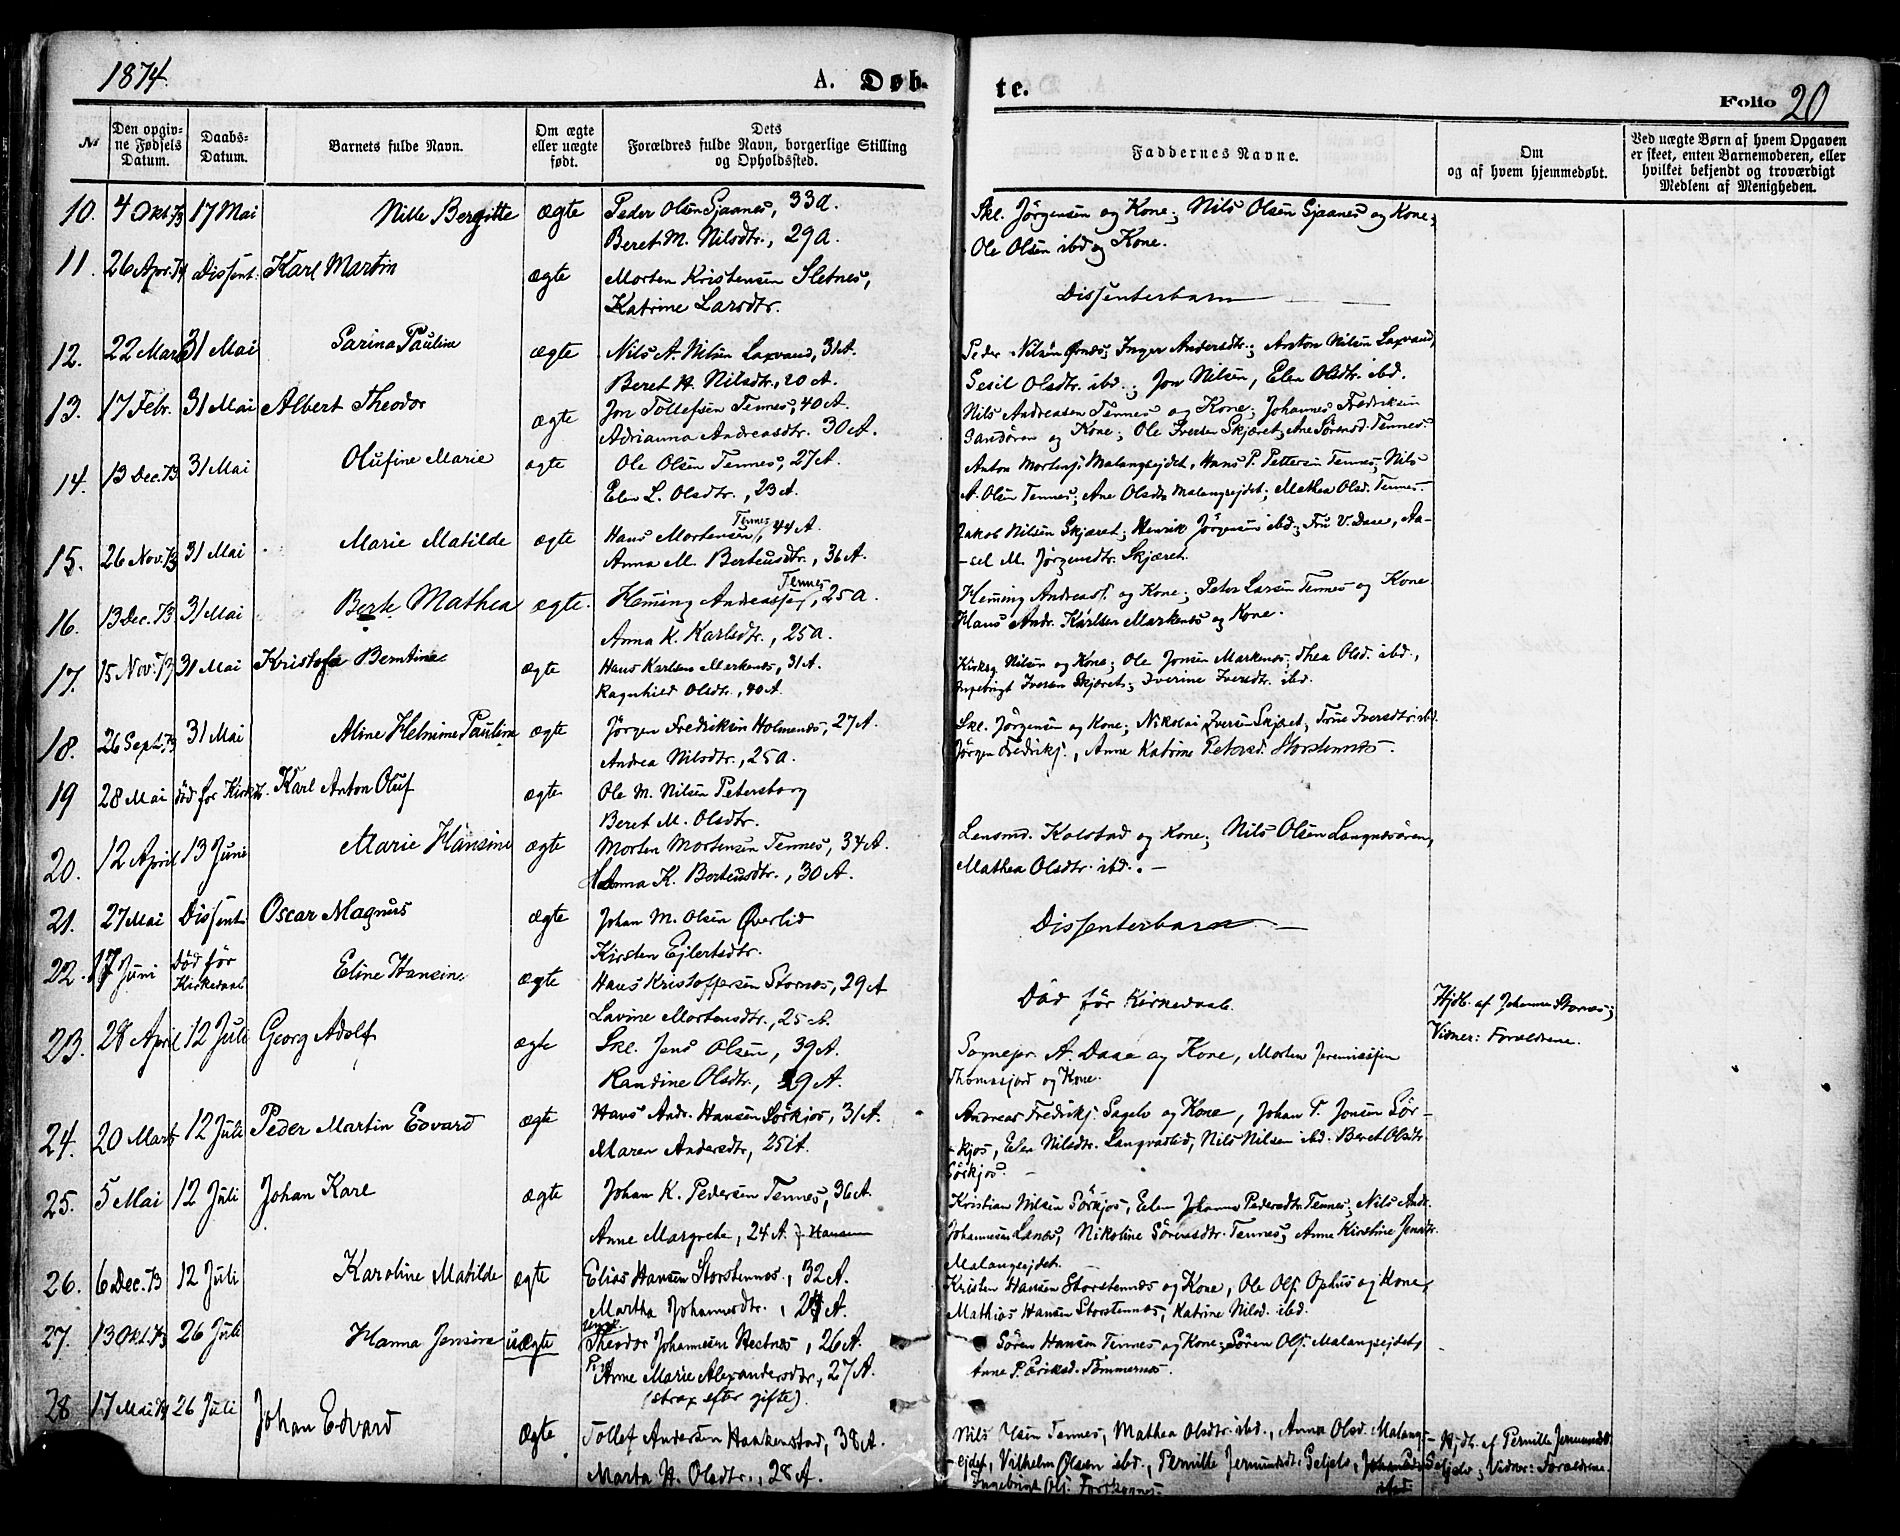 1874.
A. Døb-
te.
Folio 20
№
Den opgiv-
ne Fødsels
Datum.
Daabs-
Datum.
Barnets fulde Navn.
Om ægte
eller uægte
født.
Dets
Forældres fulde Navn, borgerlige Stilling
og Opholdssted.
Faddernes Navne.
Om
og af hvem hjemmedøbt.
Ved uægte Børn af hvem Opgaven
er skeet, enten Barnemoderen, eller
hvilket bekjendt og troværdigt
Medlem af Menigheden.
10. 4 Okt 73 17 Mai Nille Bergitte ægte Peder Olsen Gjaanes, 33 A.
Beret M. Nilsdtr., 29 A.
Skl. Jörgensen og Kone; Nils Olsen Gjaanes og Kone;
Ole Olsen ibd og Kone.
11. 26 Apr. 74 Dissent. Karl Martin ægte Morten Kristensen Sletnes,
Katrine Larsdtr.
Dissenterbarn
12. 22 Marts 31 Mai Sarina Pauline ægte Nils A. Nilsen Laxvand, 31 A.
Beret H. Nilsdtr., 20 A.
Peder Nilsen Ørnes; Inger Andersdtr.; Anton Nilsen Laxvand,
Sesil Olsdtr. ibd.; Jon Nilsen, Elen Olsdtr. ibd.
13. 17 Febr. 31 Mai Albert Theodor ægte Jon Tollefsen Tennes, 40 A.
Adrianna Andreasdtr. 30 A.
Nils Andreasen Tennes og Kone; Johannes Fredriksen
Sandören og Kone; Ole Iversen Skjæret; Ane Sörensd. Tennes.
14. 13 Dec. 73 31 Mai Olufine Marie ægte Ole Olsen Tennes, 27 A.
Elen L. Olsdtr., 23 A.
Anton Mortens. Malangsejdet, Hans P. Pettersen Tennes; Nils
A. Olsen Tennes; Ane Olsdtr Malangsejdet; Mathea Olsd. Tennes.
15. 26 Nov. 73 31 Mai Marie Matilde ægte Hans Mortensen Tennes, 44 A.
Anna M. Berteusdtr., 36 A.
Jakob Nilsen Skjæret; Henrik Jörgensen ibd; Fru V. Daae, Aa-
-sel M. Jörgensdtr. Skjæret.
16. 13 Dec. 73 31 Mai Berte Mathea ægte. Heming Andreassen Tennes, 25 A.
Anna K. Karlsdtr., 25 A.
Heming Andreas. og Kone; Peter Larsen Tennes og Kone
Hans Andr. Karlsen Markenes og Kone.
17. 15 Nov. 73 31 Mai Kristofa Berntine ægte Hans Karlsen Markenes, 31 A.
Ragnhild Olsdtr., 40 A.
Kirksg. Nilsen og Kone; Ole Jonsen Markenes, Thea Olsd. ibd.,
Ingebrigt Iversen Skjæret; Iverine Iversdtr. ibd.
18. 26 Sept. 73 31 Mai Aline Helmine Pauline ægte Jörgen Fredriksen Holmenes, 27 A.
Andrea Nilsdtr., 25 A.
Skl. Jörgensen og Kone; Nikolai Iversen Skjæret, Trine Iversdtr. ibd.
Jörgen Fredriks., Anne Katrine Petersd. Storstennes.
19 28 Mai död för Kirkd. Karl Anton Oluf ægte Ole M. Nilsen Petersborg
Beret M. Olsdtr.
20. 12 April 13 Juni Marie Hansine ægte Morten Mortensen Tennes, 34 A.
Anna K. Berteusdtr., 30 A.
Lensmd. Kolstad og Kone; Nils Olsen Langnesören,
Mathea Olsdtr. ibd.
21. 27 Mai Dissent. Oscar Magnus ægte Johan M. Olsen Øverlid
Kirsten Ejlertsdtr.
Dissenterbarn.
22. 17 Juni Död för
Kirkedaab Eline Hansine ægte Hans Kristoffersen Stornes, 29 A
Lavine Mortensdtr., 25 A.
Död för Kirkedaab.
Hjdb. af Johanna Stornes;
Vidner: Forældrene.
23. 28 April 12 Juli Georg Adolf ægte Skl. Jens Olsen, 39 A.
Randine Olsdtr, 29 A.
Sognepr. A. Daae og Kone, Morten Jeremiassen
Thomasjord og Kone.
24. 20 Marts 12 Juli Peder Martin Edvard ægte Hans Andr. Hansen Sörkjos, 31 A.
Maren Andersdtr, 25 A.
Andreas Fredriks. Sagelv og Kone, Johan P. Jonsen Sör-
-kjos, Elen Nilsdtr. Langvaslid, Nils Nilsen ibd. Beret Olsdtr
Sörkjos.
25. 5 Mai 12 Juli Johan Karl ægte Johan K. Pedersen Tennes, 36 A.
Anne Margrete, 24 A. f. Hansen
Kristian Nilsen Sörkjos, Elen Johanna Pedersdtr. Tennes; Nils Andr.
Johannesen Lanes, Nikoline Sörensdtr. Tennes; Anne Kirstine Jensdtr.
Malangsejdet.
26. 6 Dec. 73 12 Juli Karoline Matilde ægte Elias Hansen Storstennes, 32 A.
Martha Johannesdtr., 24 A.
Kristen Hansen Storstennes og Kone, Ole Ols. Ophus og Kone,
Mathias Hansen Storstennes, Katrine Nilsd. ibd.
27. 13 Okt. 73 26 Juli Hanna Jensine uægte Ungk. Theodor Johannesen Hestnes, 26 A.
Pig. Anne Marie Alexandersdtr, 27 A.
(strax efter gifte).
Sören Hansen Tennes og Kone; Sören Ols. Malangsejdet,
Anne P. Eriksd. Tömmernes.
28 17 Mai 74 26 Juli Johan Edvard ægte Tollef Andersen Haakenstad, 38 A.
Marta H. Olsdtr., 28 A.
Nils Olsen Tennes, Mathea Olsdtr. ibd., Anna Olsd. Malang-
-ejdet, Vilhelm Olsen ibd., Pernille Jermundsdtr. Seljelv,
Ingebrigt Ols. Forhannes.
Hjdb. af Pernille Jermundsdt.
Seljelv; Vidner: Forældrene.